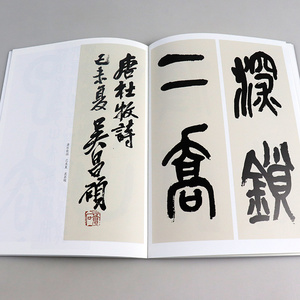 深鎖
二喬
唐杜牧詩
己未夏 吳昌碩